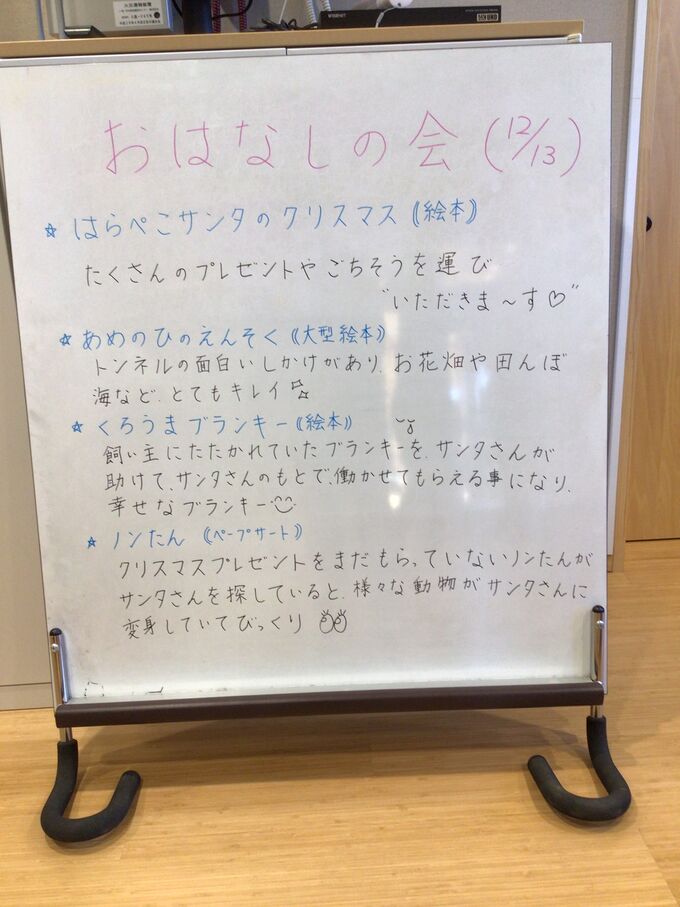 おはなしの会(12/13)
☆ はらぺこサンタのクリスマス《絵本》
たくさんのプレゼントやごちそうを運び
"いただきま〜す♡"
☆ あめのひのえんそく《大型絵本》
トンネルの面白いしかけがあり、お花畑や田んぼ
海など、とてもキレイ☆
☆ くろうまブランキー《絵本》
飼い主にたたかれていたブランキーを、サンタさんが
助けて、サンタさんのもとで、働かせてもらえる事になり、
幸せなブランキー
☆ ノンたん 《ペープサート》
クリスマスプレゼントをまだもらっていないノンたんが
サンタさんを探していると、様々な動物がサンタさんに
変身していてびっくり